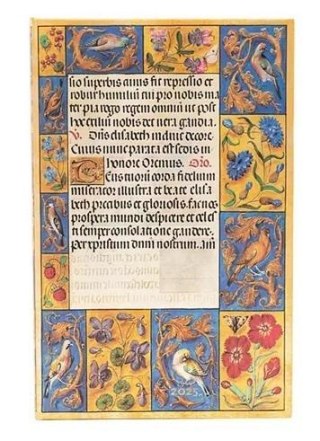 sio superbis cuius fit repressio et
robur humiliū tu pro nobis ma
ter pia rogo regem omniū ut post
hoc exiliū nobis det vera gaudia.
V. Dn̄s elisabeth induit decore.
Cuius nunc parata est sedis in
honore Oremus. Orō.
corda fidelium
miserator illustra et beate elisa
beth precibus et gloriosis. fac nos
prospera mundi despicere et celes
ti semper consolatione gaudere.
Per xpistum dn̄m nostrum. am̄
2025